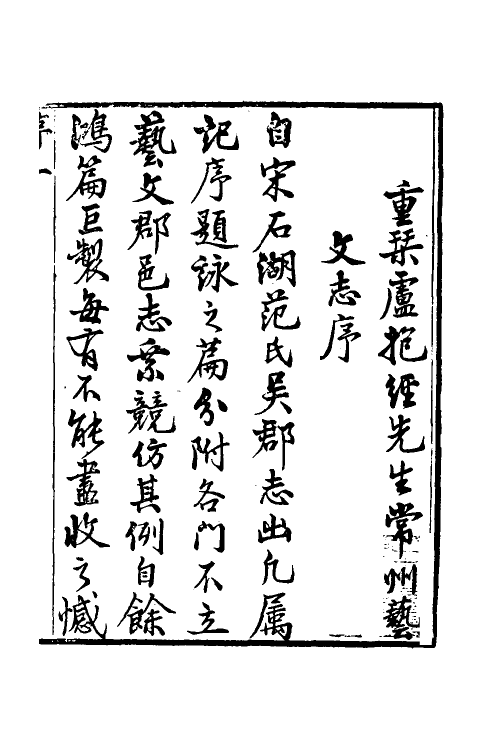 重栞盧抱經先生常州藝
文志序
自宋石湖范氏吳郡志出凡属
記序題詠之篇分附各門不立
藝文郡邑志乘競仿其例自餘
鴻篇巨製每有不能盡收之憾
序一